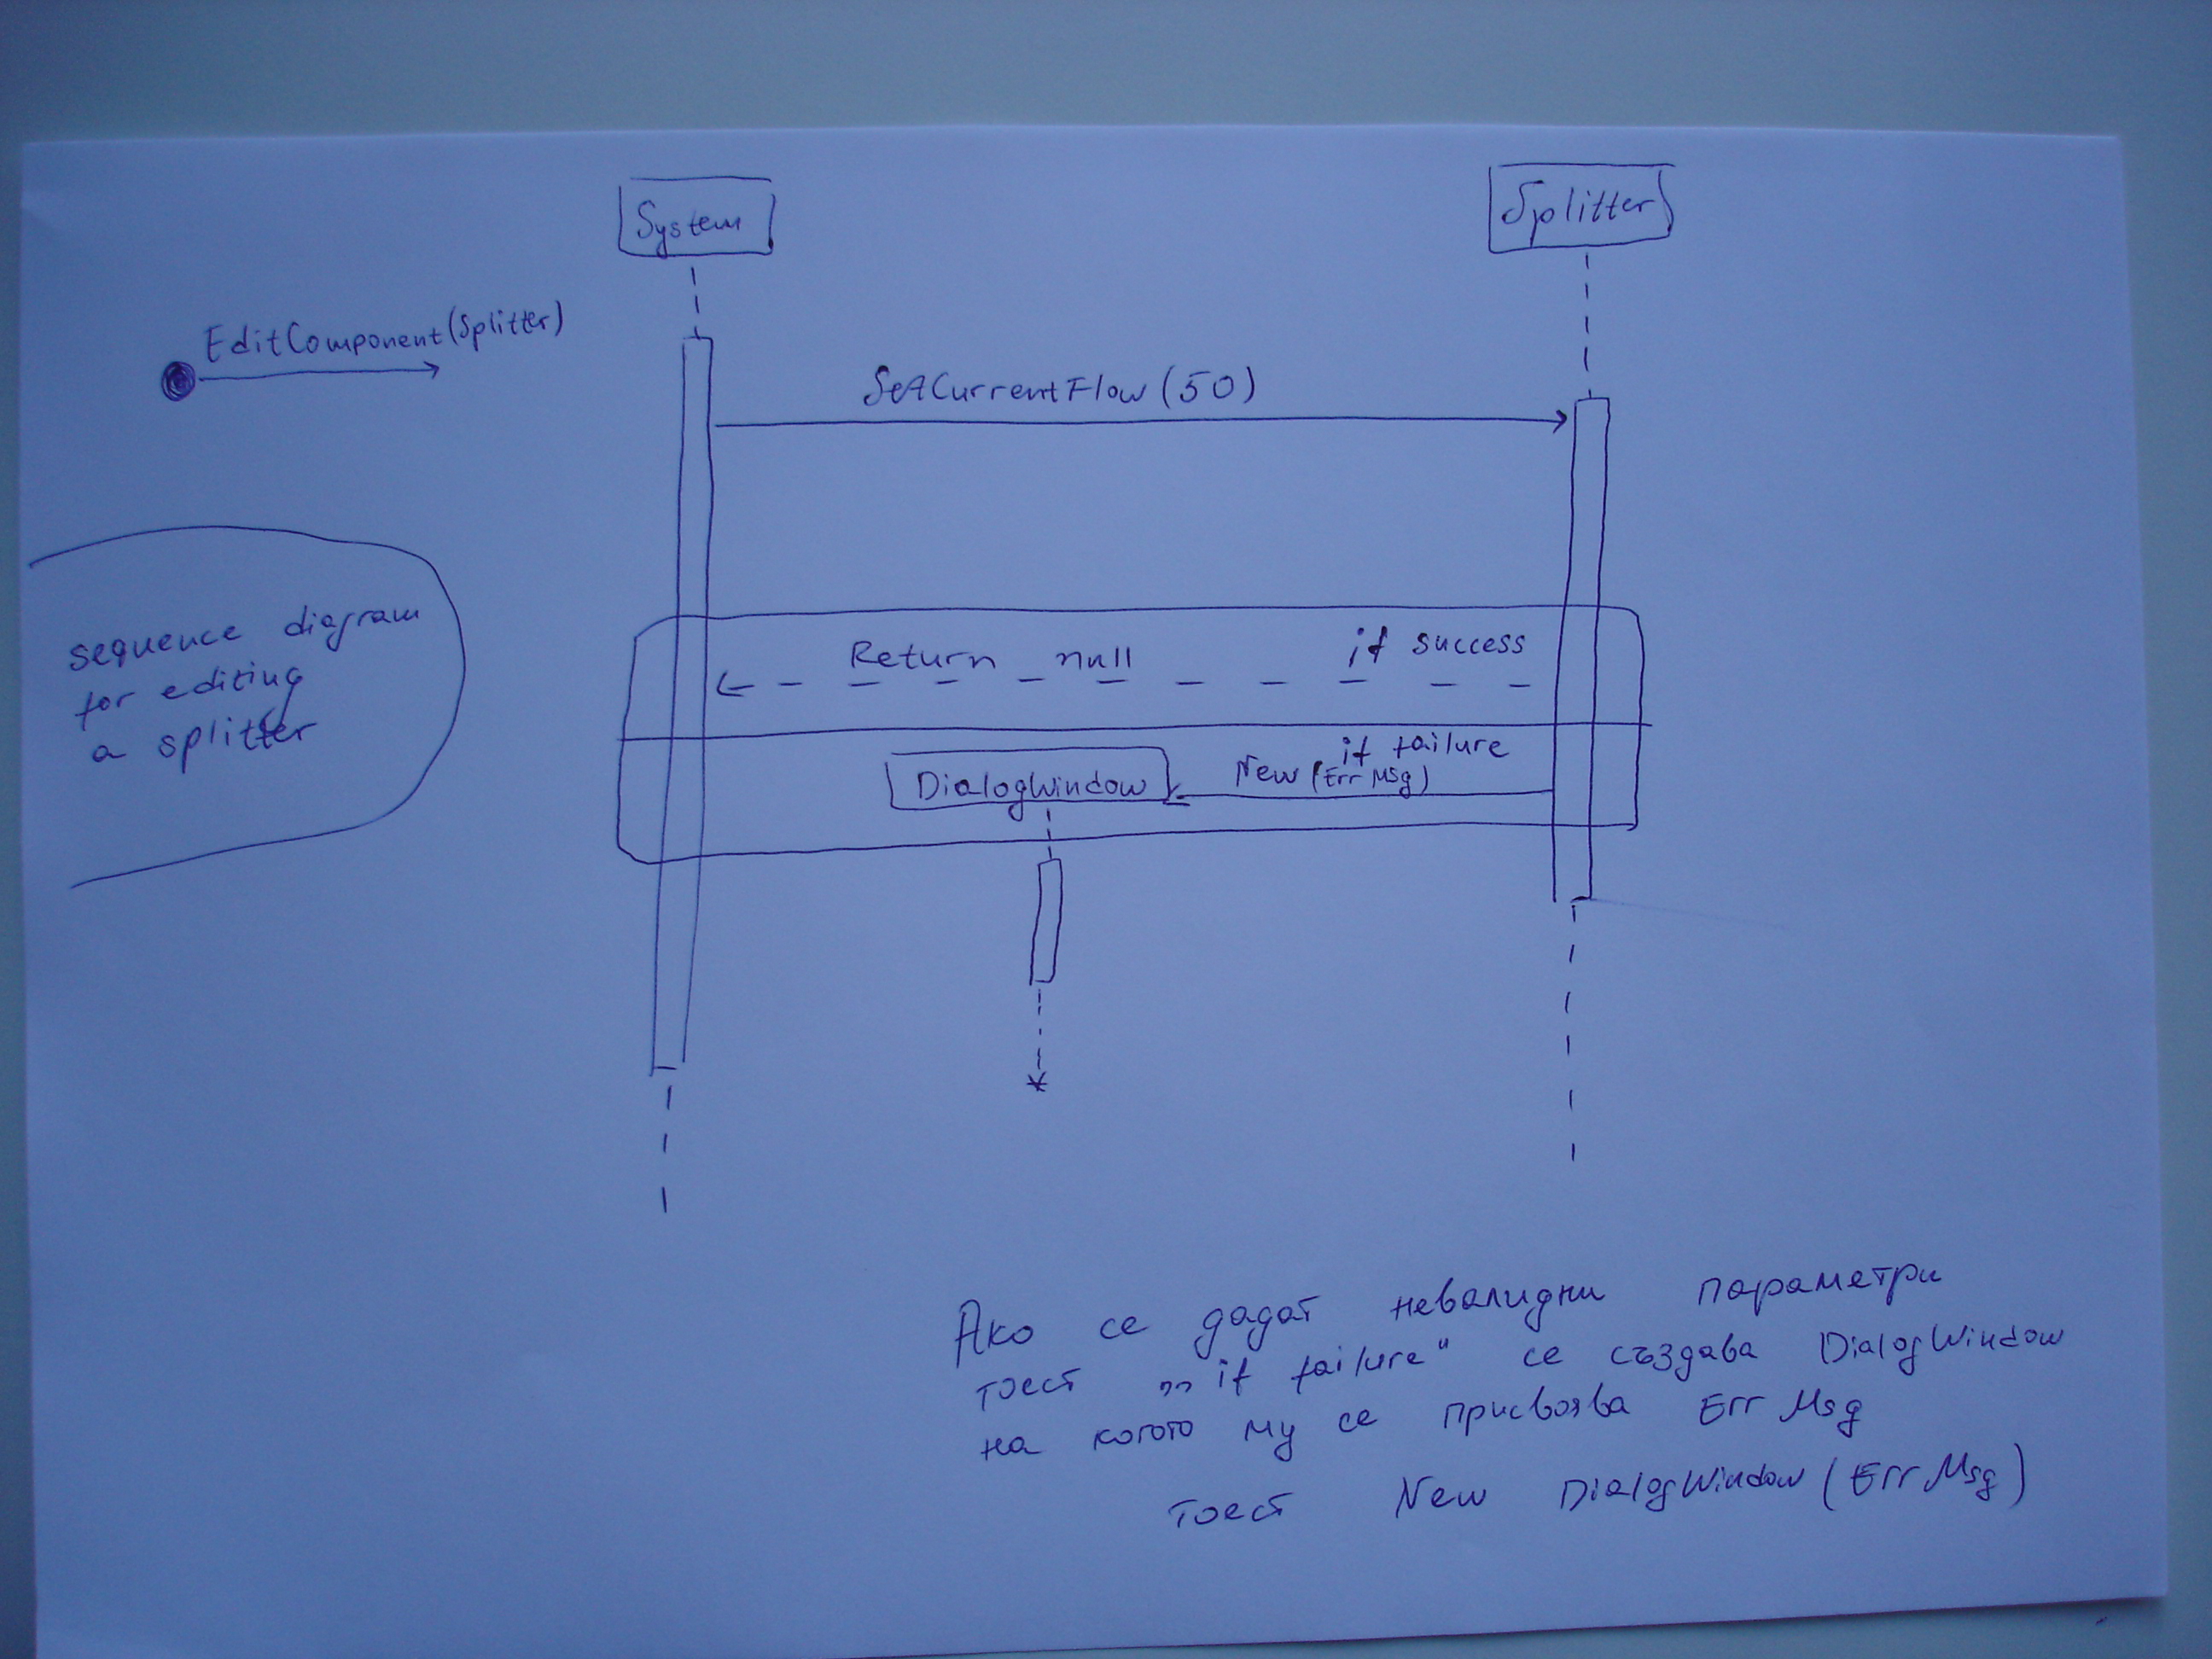 System
Splitter
EditComponent(Splitter)
SetCurrentFlow(50)
sequence diagram
for editing
a splitter
Return null
if success
if failure
New(Err Msg)
DialogWindow
Ако се дадат невалидни параметри
тоест „if failure" се създава DialogWindow
на когото му се присвоява Err Msg
тоест New DialogWindow(Err Msg)